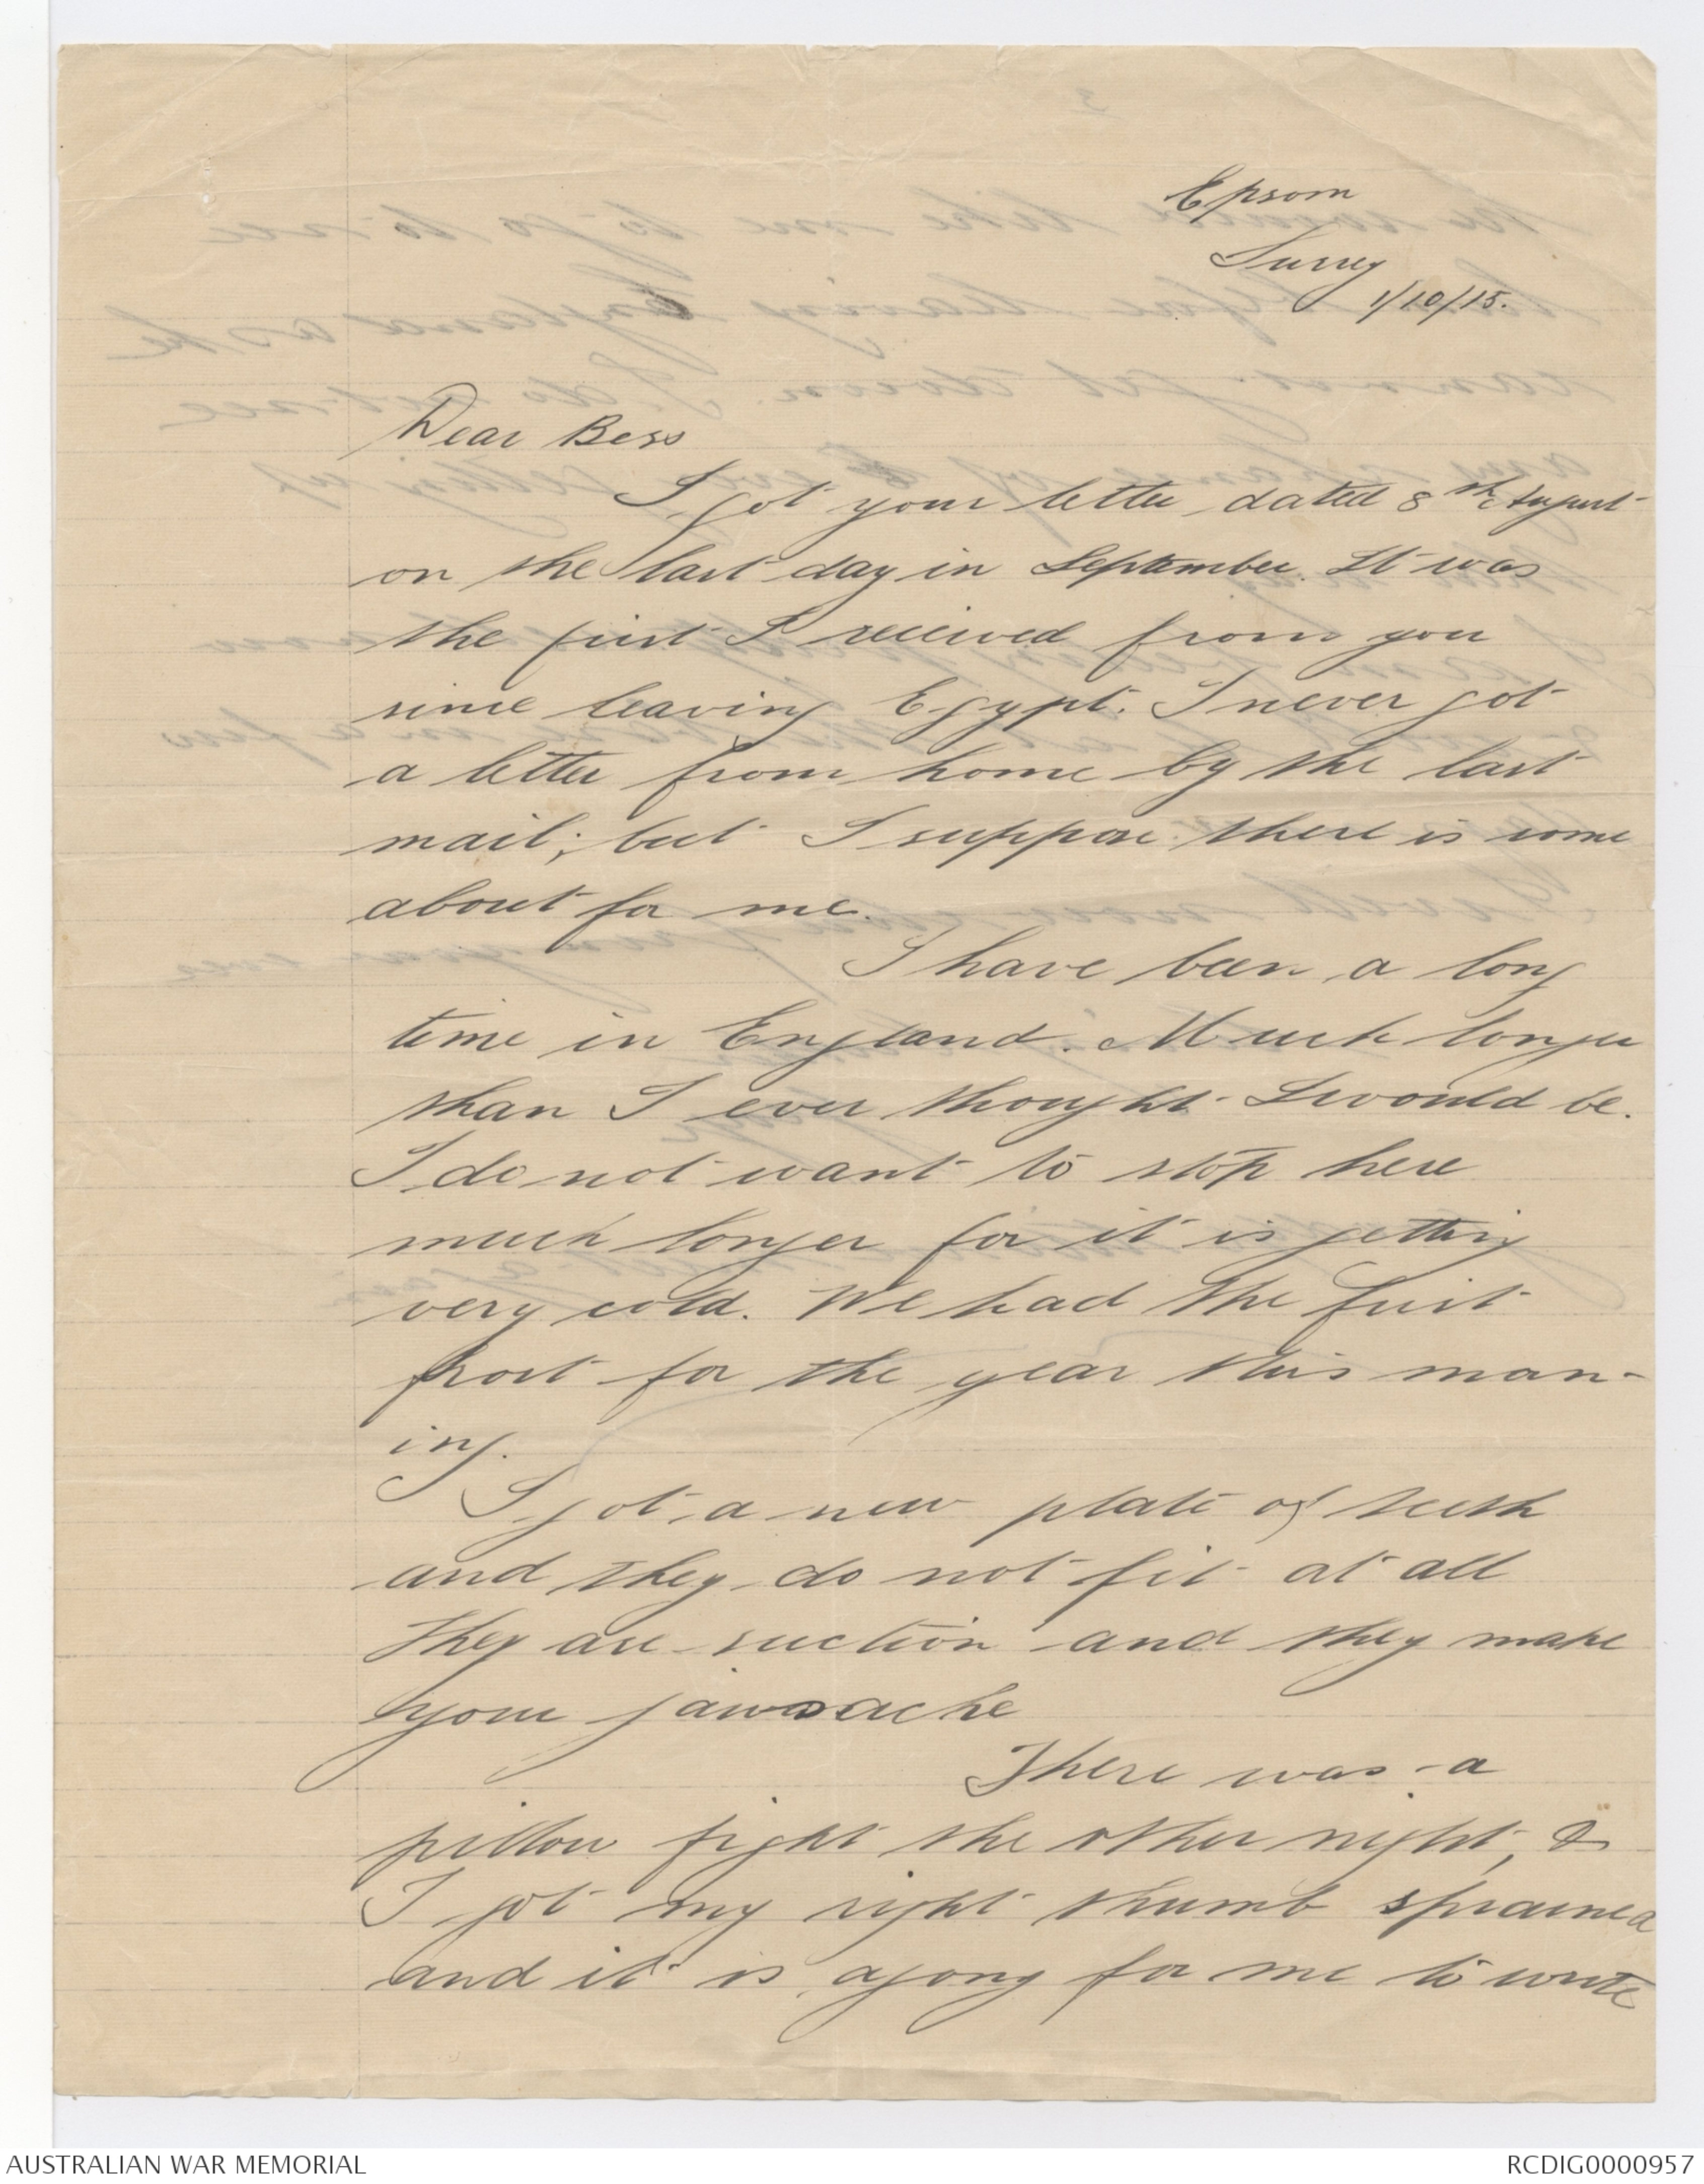 Epsom
Surrey
1/10/15.
Dear Bess
I got your letter dated 8th August
on the last day in September. It was
the first I received from you
since leaving Egypt. I never got
a letter from home by the last
mail; but I suppose there is some
about for me.
I have been a long
time in England. Much longer
than I ever thought I would be.
I do not want to stop here
much longer for it is getting
very cold. We had the first
frost for the year this morn-
ing.
I got a new plate of teeth
and they do not fit at all
They are suction and they make
your jaws ache
There was a
pillow fight the other night, &
I got my right thumb sprained
and it is agony for me to write
AUSTRALIAN WAR MEMORIAL
RCDIG0000957